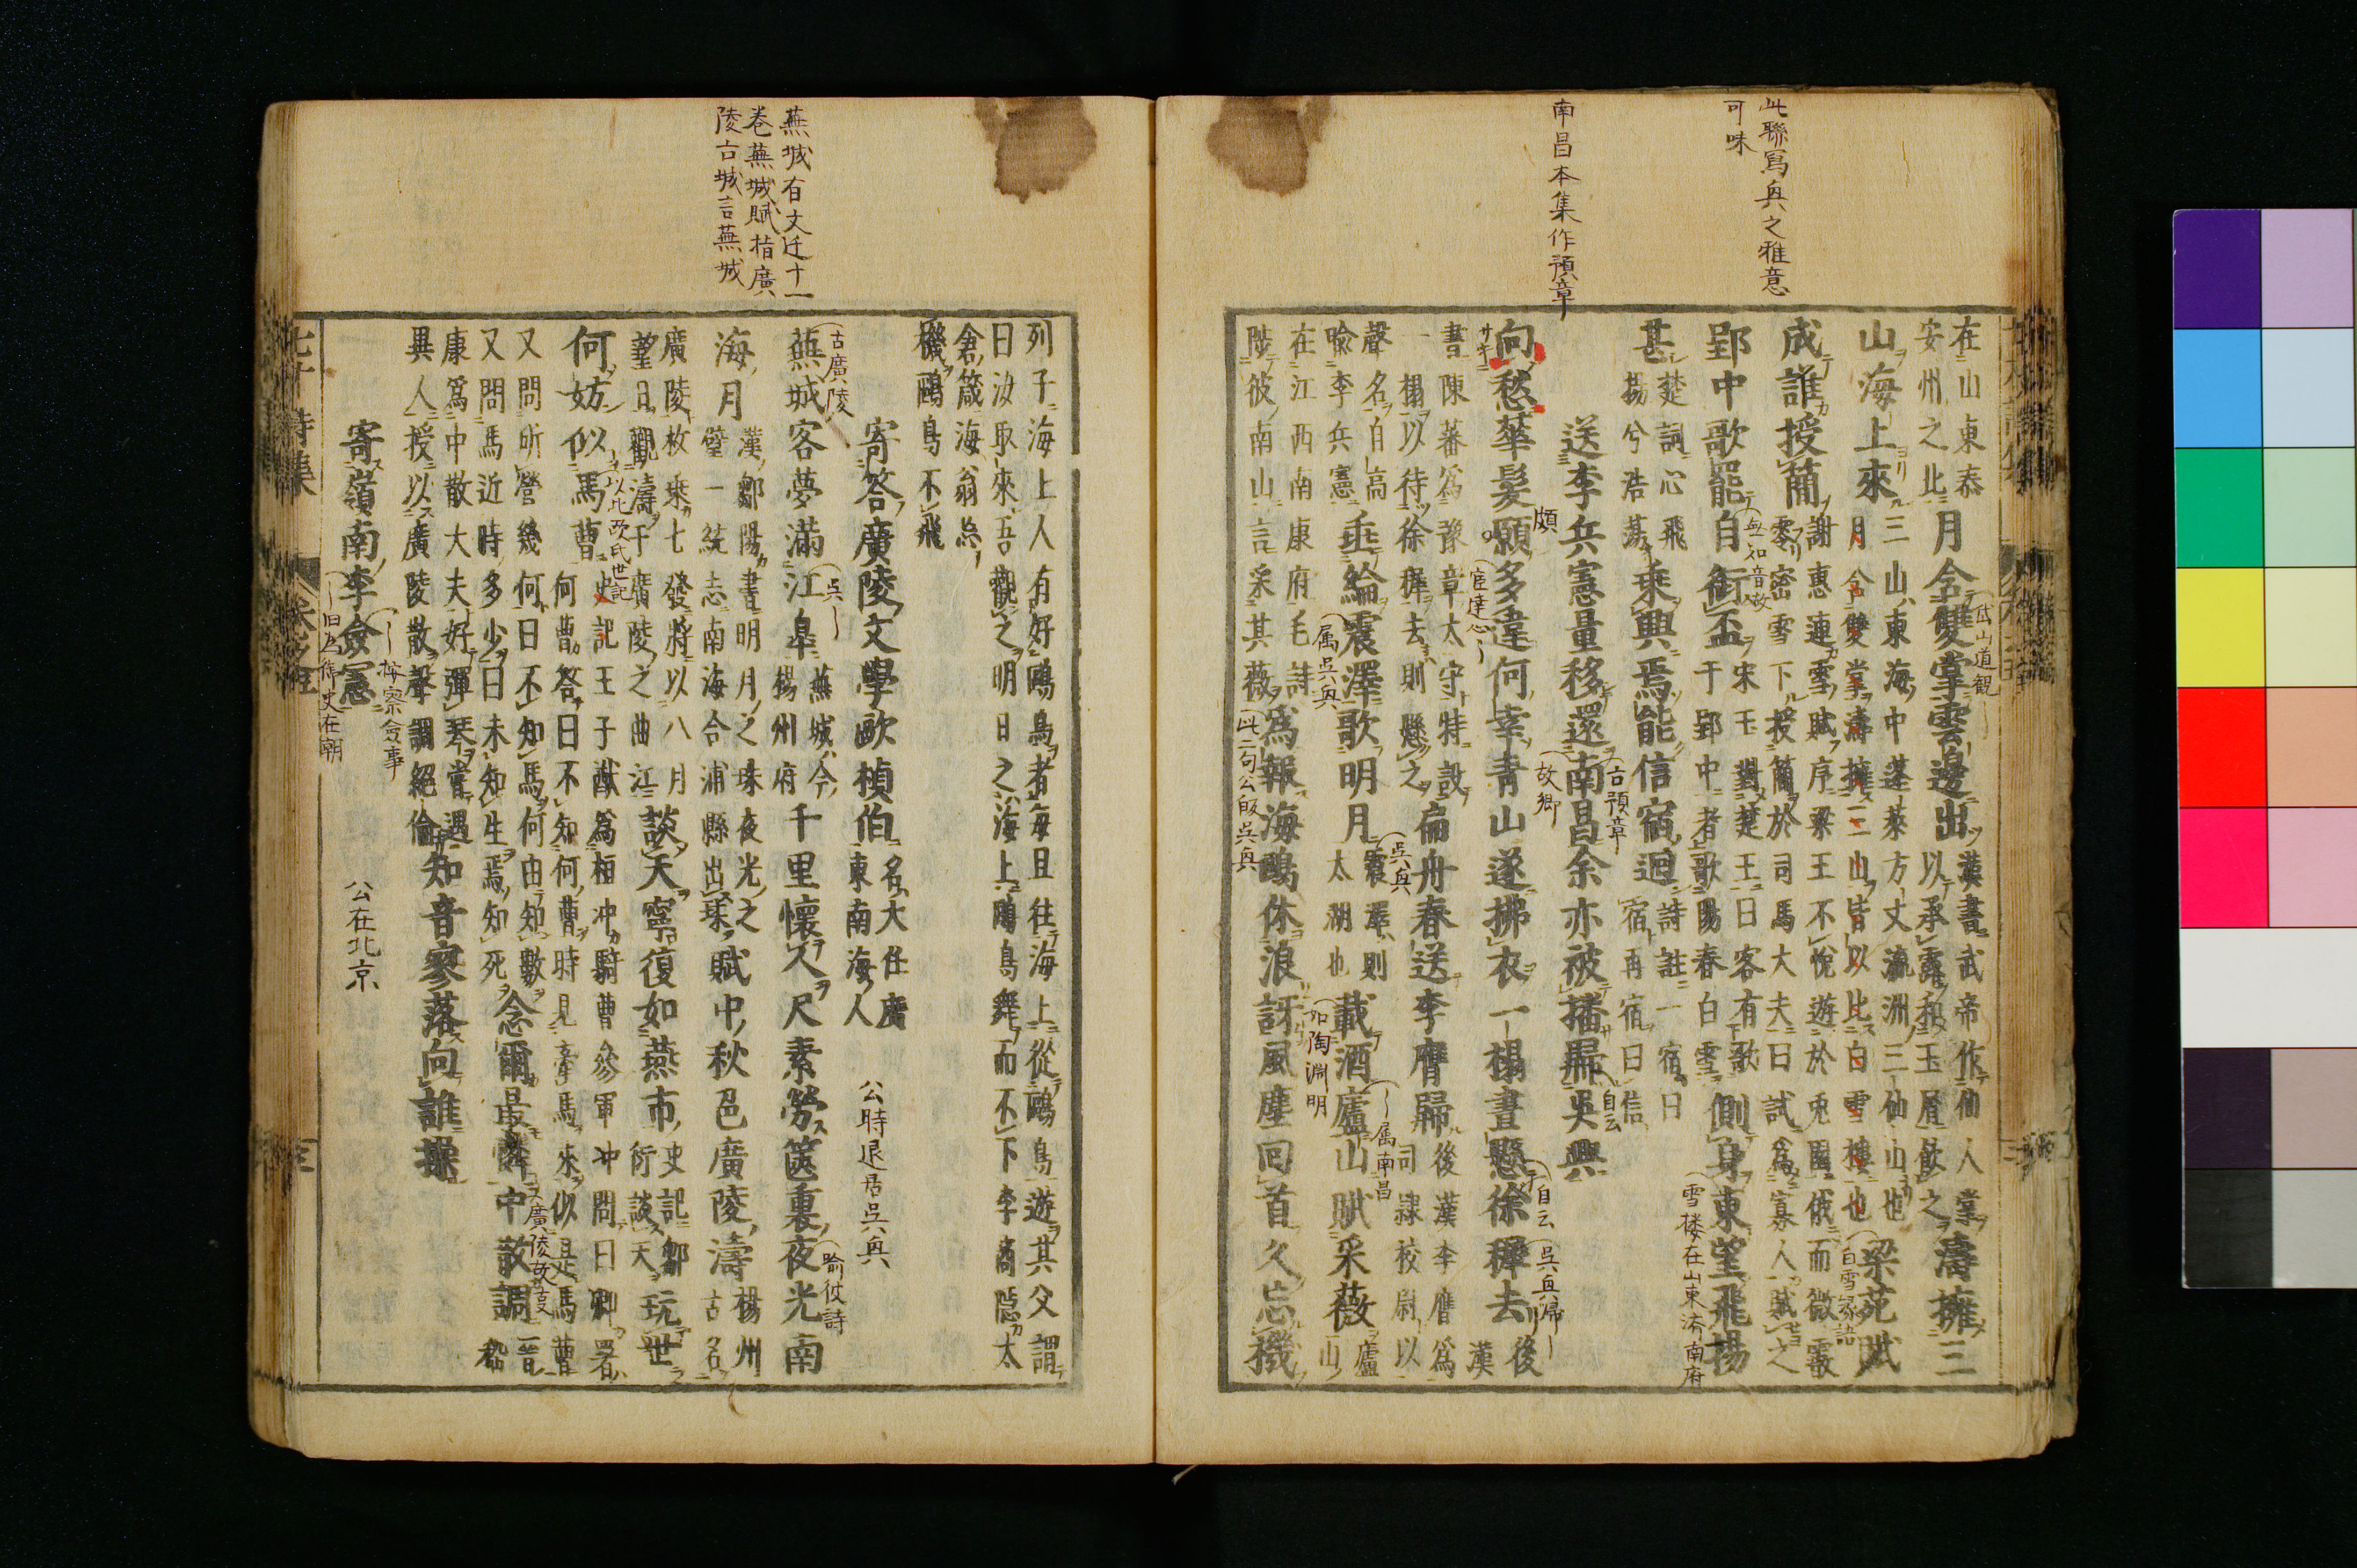 此聯寫吳興之雅意
可味
南昌本集作預章
在山東泰
安州之北
月含雙掌雲邊出
漢書武帝作仙人掌
以承露和玉屑飲之
濤擁三
山海上來
三山東海中蓬萊方丈瀛洲三仙山也
月含雙掌濤擁三山皆以比白雪樓也
梁苑賦
成誰授簡
謝惠連雪賦序梁王不悅遊於兎園俄而微霰
零密雪下授簡於司馬大夫曰試為寡人賦之
郢中歌罷自銜盃
宋玉對楚王曰客有歌
于郢中者歌陽春白雪
側身東望飛揚
雪楼在山東済南府
甚
楚詞心飛
揚兮浩蕩
乘興焉能信宿迴
詩註一宿曰
宿再宿曰信
送李兵憲量移還南昌余亦被播歸吳興
古預章
故鄉
自云
向愁華髮願多違何幸青山遂拂衣一榻晝懸徐穉去
頗
宦達心
自云
吳興歸
後漢
書陳蕃為豫章太守特設
一榻以待徐穉去則懸之
扁舟春送李膺歸
後漢李膺為
司隷校尉以
聲名自高
喩李兵憲
垂綸震澤歌明月
属吳興
吳興
震澤則
太湖也
載酒廬山賦采薇
如陶淵明
属南昌
廬
山
在江西南康府毛詩
陟彼南山言采其薇
為報海鷗休浪訝風塵回首久忘機
此二句公皈吳興
列子海上人有好鷗鳥者每旦往海上從鷗鳥遊其父謂
曰汝取來吾觀之明日之海上鷗鳥舞而不下李商隱太
倉箴海翁忘
機鷗鳥不飛
蕪城有文迁十一
巻蕪城賦指廣
陵古城言蕪城
寄答廣陵文學歐楨伯
名大任廣
東南海人
公時退居吳興
古廣陵
蕪城客夢滿江皐
吳
蕪城今
楊州府
千里懷人尺素勞篋裏夜光南
喻彼詩
海月
漢鄒陽書明月之珠夜光之
璧一統志南海合浦縣出珠
賦中秋色廣陵濤
楊州
古名
廣陵枚乘七發將以八月
望日觀濤于廣陵之曲江
談天寧復如燕市
史記鄒
衍談天
玩世
何妨似馬曹
以此改氏世記
史記王子猷為桓冲騎曹參軍冲問曰卿署
何曹答曰不知何曹時見牽馬來似是馬曹
又問所管幾何曰不知馬何由知數
又問馬近時多少曰未知生焉知死
念爾最憐中散調
廣陵故支
晉
嵇
康為中散大夫好彈琴嘗遇
異人授以廣陵散聲調絕倫
知音寥落向誰操
寄嶺南李僉憲
按察僉事
旧公作史在朝
公在北京
七才詩集